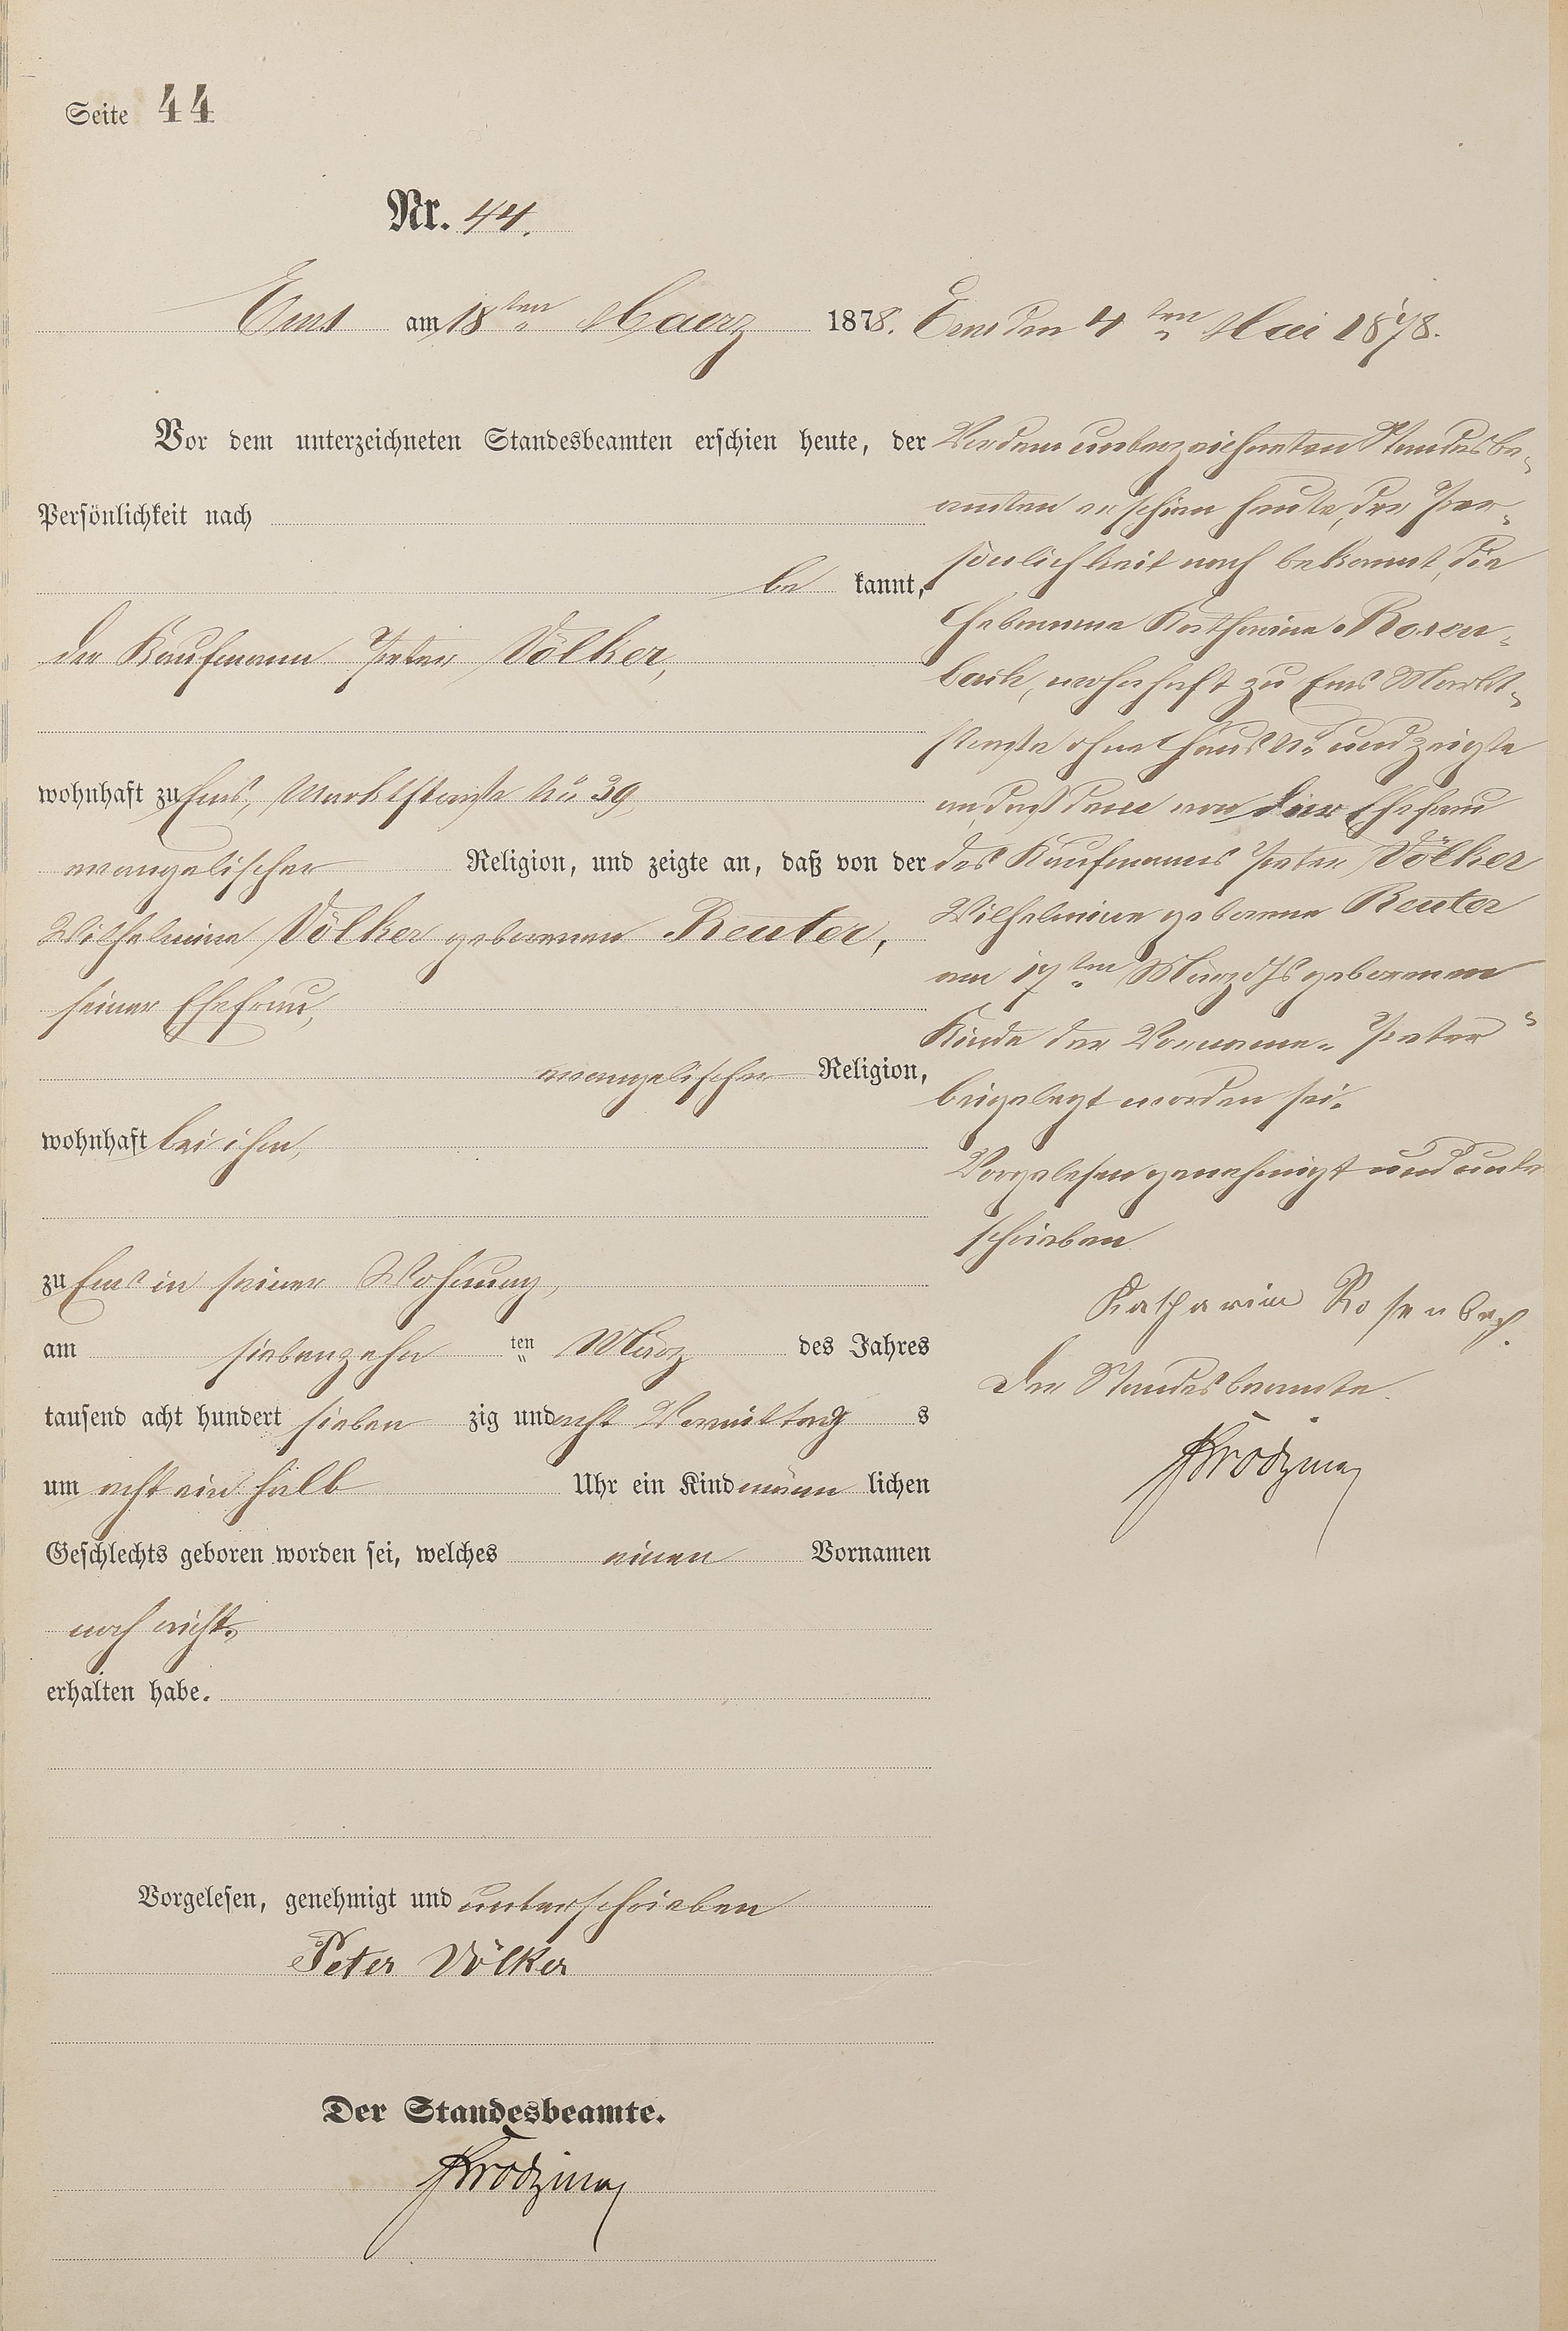 Seite 44
Nr. 44.
Ems am 18ten Maerz 1878.
Vor dem unterzeichneten Standesbeamten erschien heute, der
Persönlichkeit nach
be kannt,
der Kaufmann Peter Völker,
wohnhaft zu Ems, Marktstraße No 39,
evangelischer Religion, und zeigte an, daß von der
Wilhelmine Völker geborenen Reuter,
seiner Ehefrau,
evangelischer Religion,
wohnhaft bei ihm,
zu Ems in seiner Wohnung,
am siebenzehn ten März des Jahres
tausend acht hundert sieben zig und acht Vormittag s
um acht ein halb Uhr ein Kind männ lichen
Geschlechts geboren worden sei, welches einen Vornamen
noch nicht
erhalten habe.
Vorgelesen, genehmigt und unterschrieben
Peter Völker
Der Standesbeamte.
Ems den 4ten Mai 1878.
Vor dem unterzeichneten Standesbe-
amten erschien heute, der Per-
sönlichkeit nach bekannt, die
Hebamme Katharina Rosen-
bach, wohnhaft zu Ems Markt-
straße ohne Haus No und zeigte
an, daß dem von der Ehefrau
des Kaufmanns Peter Völker
Wilhelmine geborene Reuter
am 17ten März ds Js geborenen
Kinde der Vorname „Peter“
beigelegt worden sei.
Vorgelesen genehmigt und unter
schrieben
Katharine Rosenbach.
Der Standesbeamte.